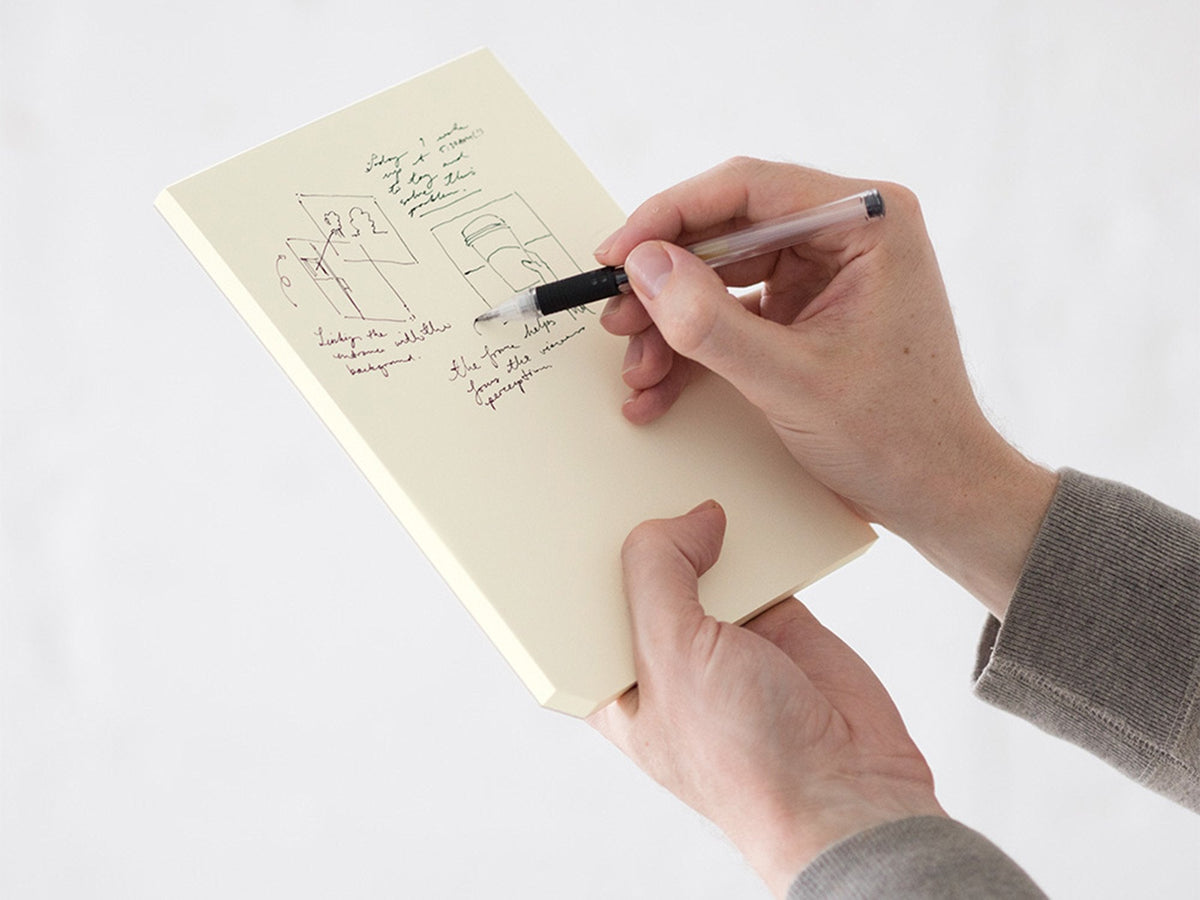 Today I woke
up at 5:30AM(!)
to try and
solve this
problem.
Linking the
entrance with the
background.
the frame helps
focus the viewers
perception